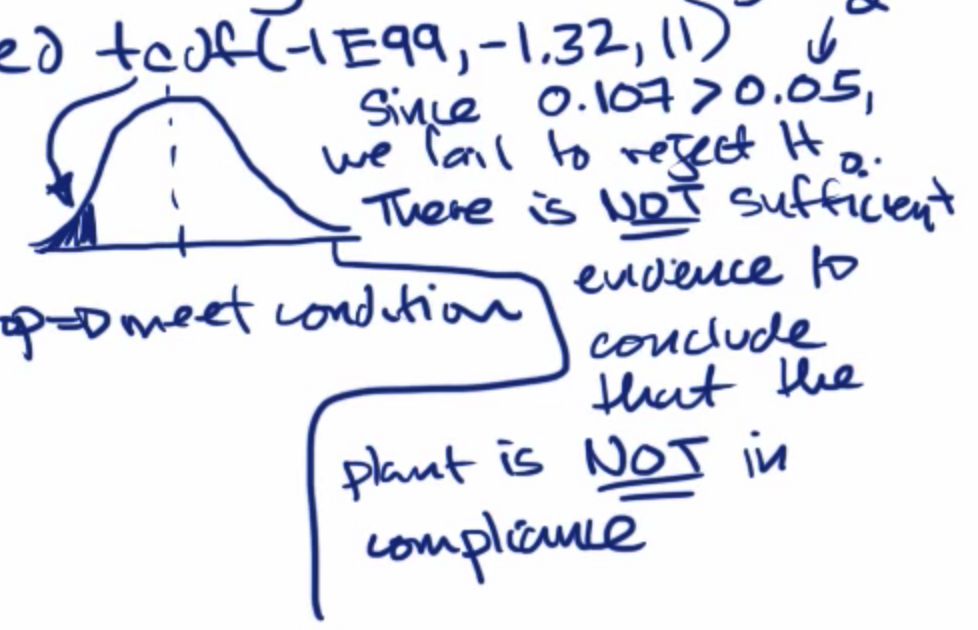 tcdf(-1E99, -1.32, 11)
Since 0.107 > 0.05,
we fail to reject H0.
There is NOT sufficient
evidence to
conclude
that the
plant is NOT in
compliance
meet condition